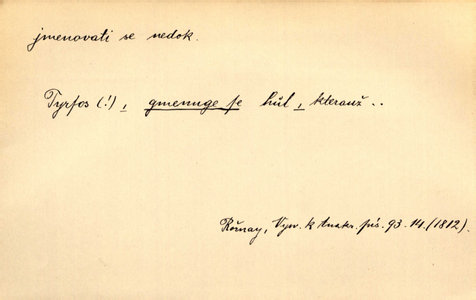 jmenovati se nedok.
Tyrsos (!), gmenuge se hůl, kterauž..
Rožnay, Vysv. k Anakr. pís. 93. 14. (1812).